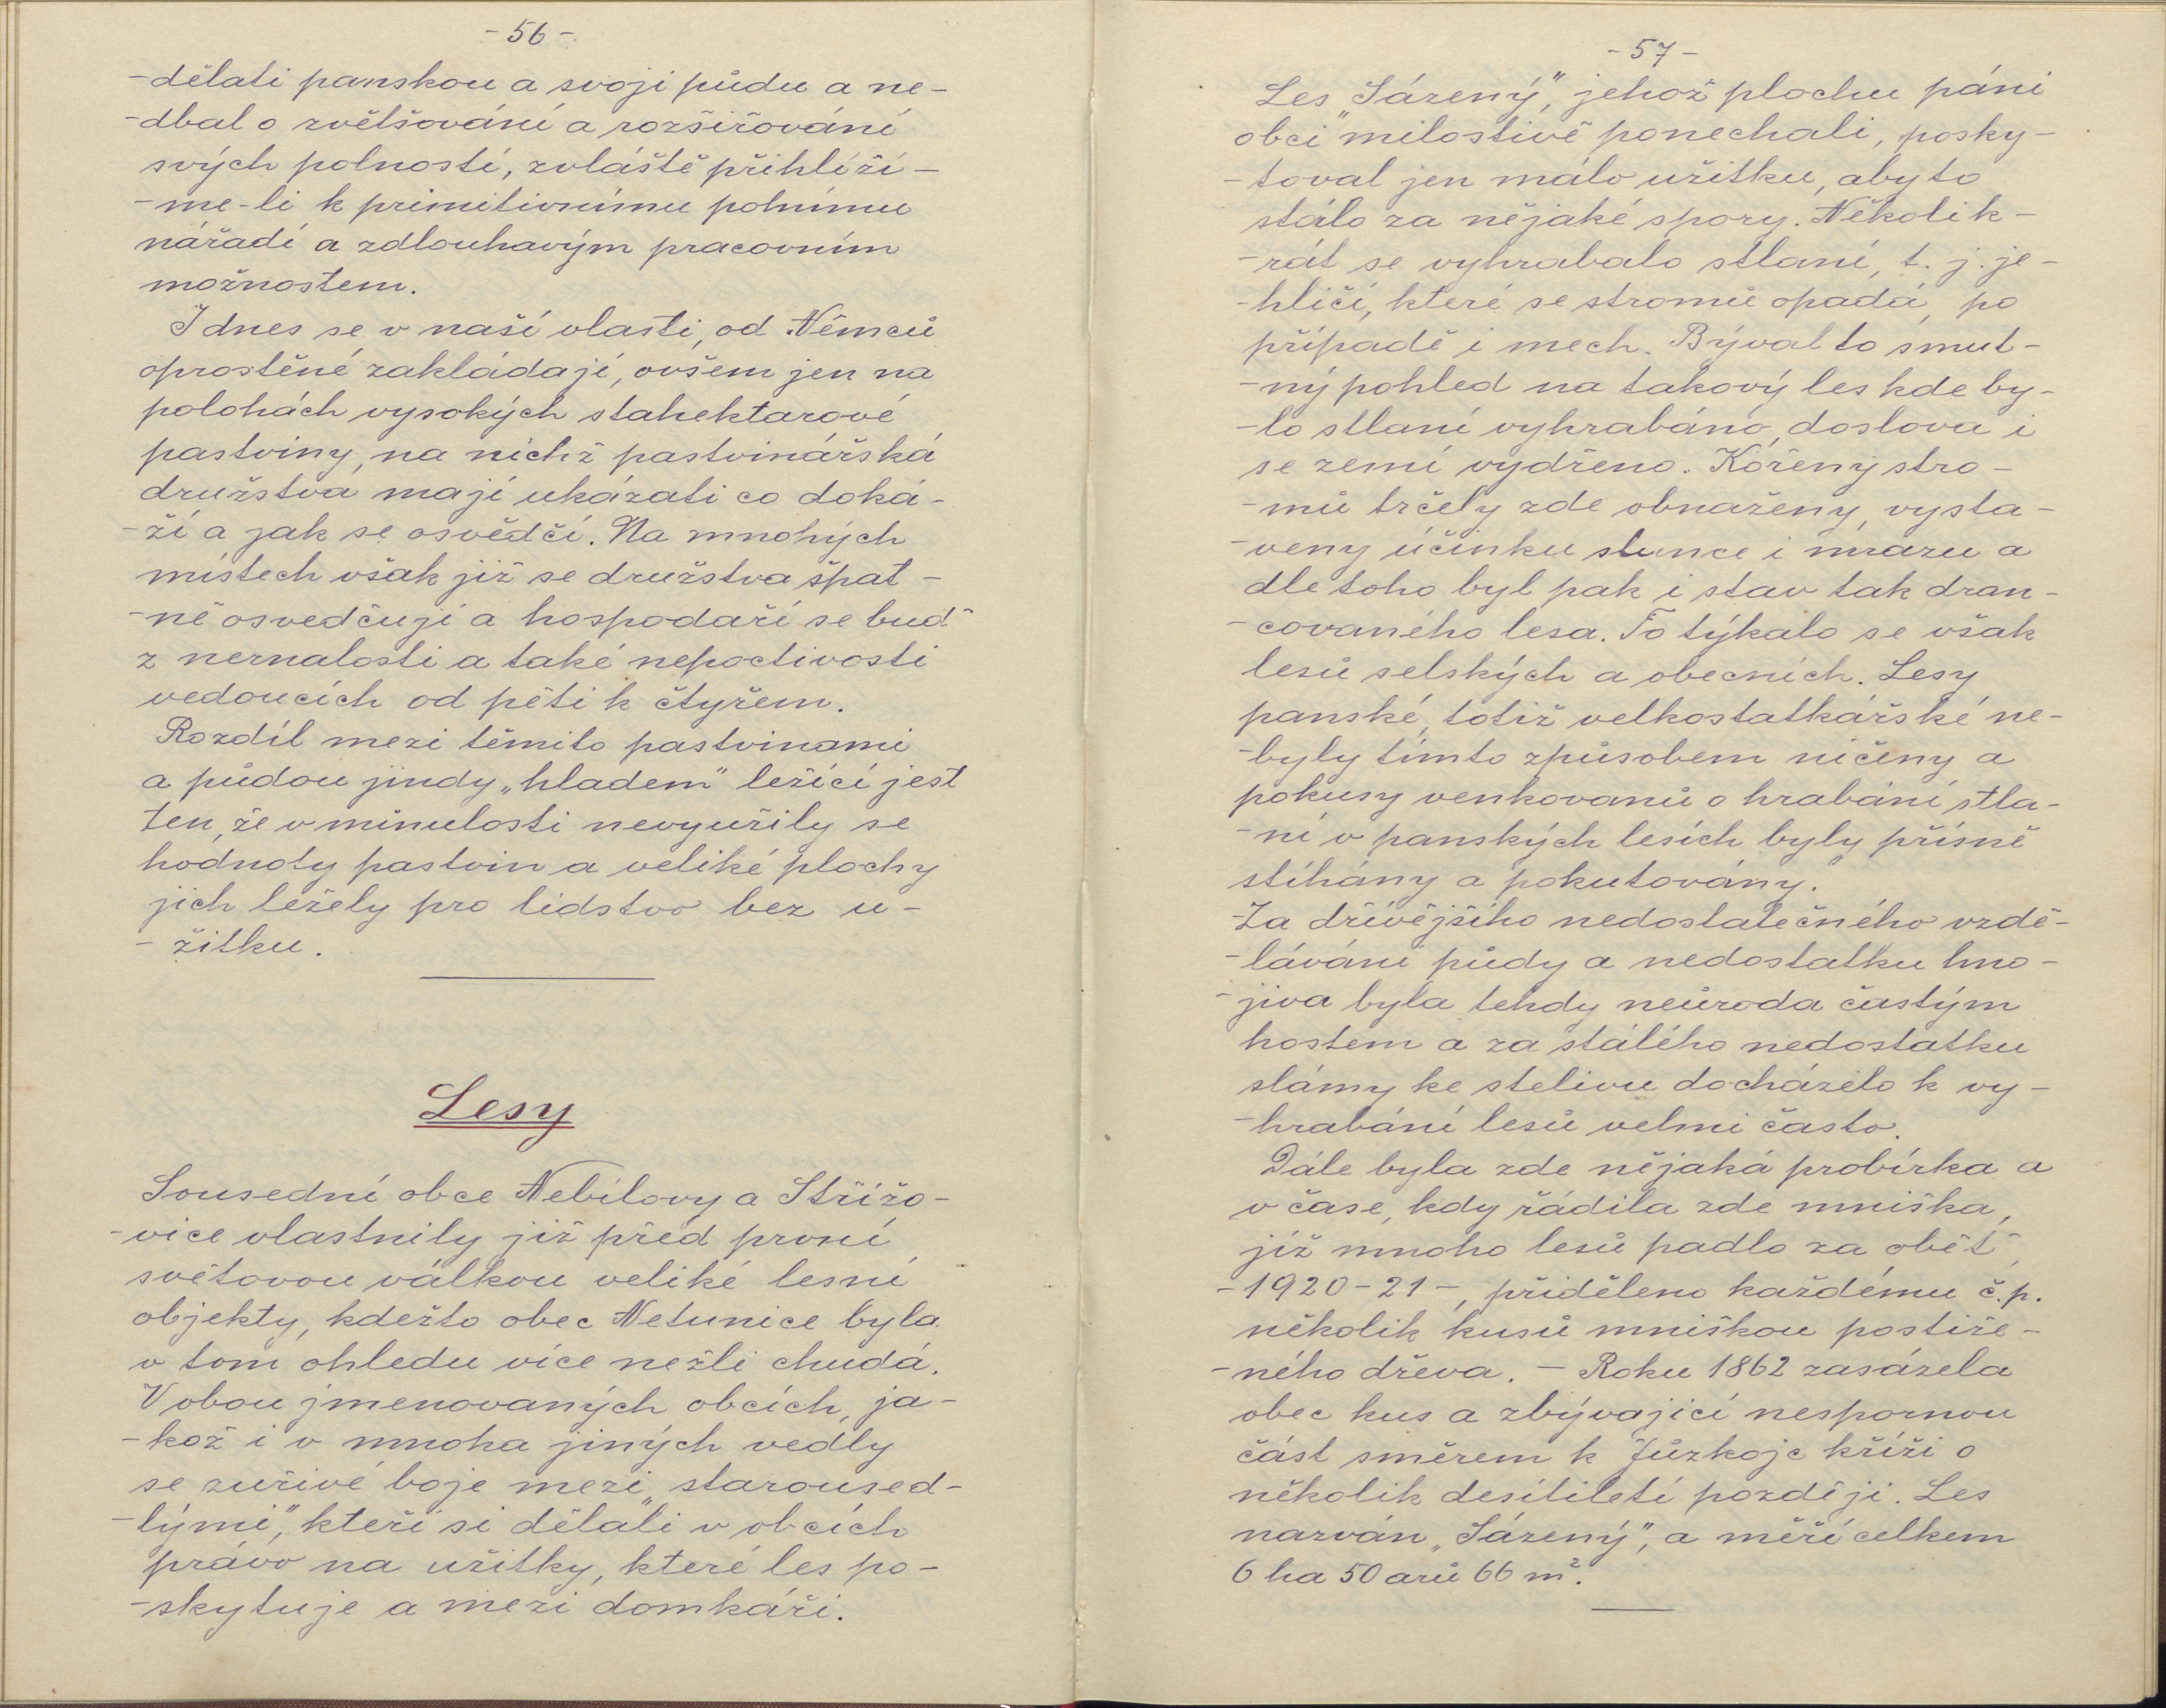 - 56 -
-dělati panskou a svoji půdu a ne-
-dbal o zvětšování a rozšiřování
svých polností, zvláště přihlíží-
-me-li k primitivnímu polnímu
nářadí a zdlouhavým pracovním
možnostem.
I dnes se v naší vlasti, od Němců
oproštěné zakládají, ovšem jen na
polohách vysokých stahektarové
pastviny, na nichž pastvinářská
družstva mají ukázati co doká-
-ží a jak se osvědčí. Na mnohých
místech však již se družstva špat-
-ně osvedčují a hospodaří se buď
z neznalosti a také nepoctivosti
vedoucích od pěti k čtyřem.
Rozdíl mezi těmito pastvinami
a půdou jindy „hladem" ležící jest
ten, že v minulosti nevyužily se
hodnoty pastvin a veliké plochy
jich ležely pro lidstvo bez u-
- žitku.
Lesy
Sousední obce Nebílovy a Střížo-
-vice vlastnily již před první
světovou válkou veliké lesní
objekty, kdežto obec Netunice byla
v tom ohledu více nežli chudá.
V obou jmenovaných obcích, ja-
-kož i v mnoha jiných vedly
se zuřivé boje mezi „starousedlými
-lými", kteří si dělali v obcích
právo na užitky, které les po-
-skytuje a mezi domkáři.
- 57 -
Les „Sázený", jehož plochu páni
obci milostivě ponechali, posky-
-toval jen málo užitku, aby to
stálo za nějaké spory. Několik-
-rát se vyhrabalo stlaní, t. j. je-
-hličí, které se stromů opadá, po
případě i mech. Býval to smut-
-ný pohled na takový les kde by-
-lo stlaní vyhrabáno, doslova i
se zemí vydřeno. Kořeny stro-
-mů trčely zde obnaženy, vysta-
-veny účinku slunce i mrazu a
dle toho byl pak i stav tak dran-
-covaného lesa. To týkalo se však
lesů selských a obecních. Lesy
panské, totiž velkostatkářské ne-
-byly tímto způsobem ničeny a
pokusy venkovanů o hrabání stla-
-ní v panských lesích byly přísně
stíhány a pokutovány.
Za dřívějšího nedostatečného vzdě-
-lávání půdy a nedostatku hno-
-jiva byla tehdy neúroda častým
hostem a za stálého nedostatku
slámy ke stelivu docházelo k vy-
-hrabání lesů velmi často.
Dále byla zde nějaká probírka a
v čase, kdy řádila zde mniška,
jíž mnoho lesů padlo za oběť,
-1920-21-, přiděleno každému č.p.
několik kusů mniškou postiže-
-ného dřeva. - Roku 1862 zasázela
obec kus a zbývající nespornou
část směrem k Jůzkojc kříži o
několik desítiletí později. Les
nazván „Sázený", a měří celkem
6 ha 50 arů 66 m².